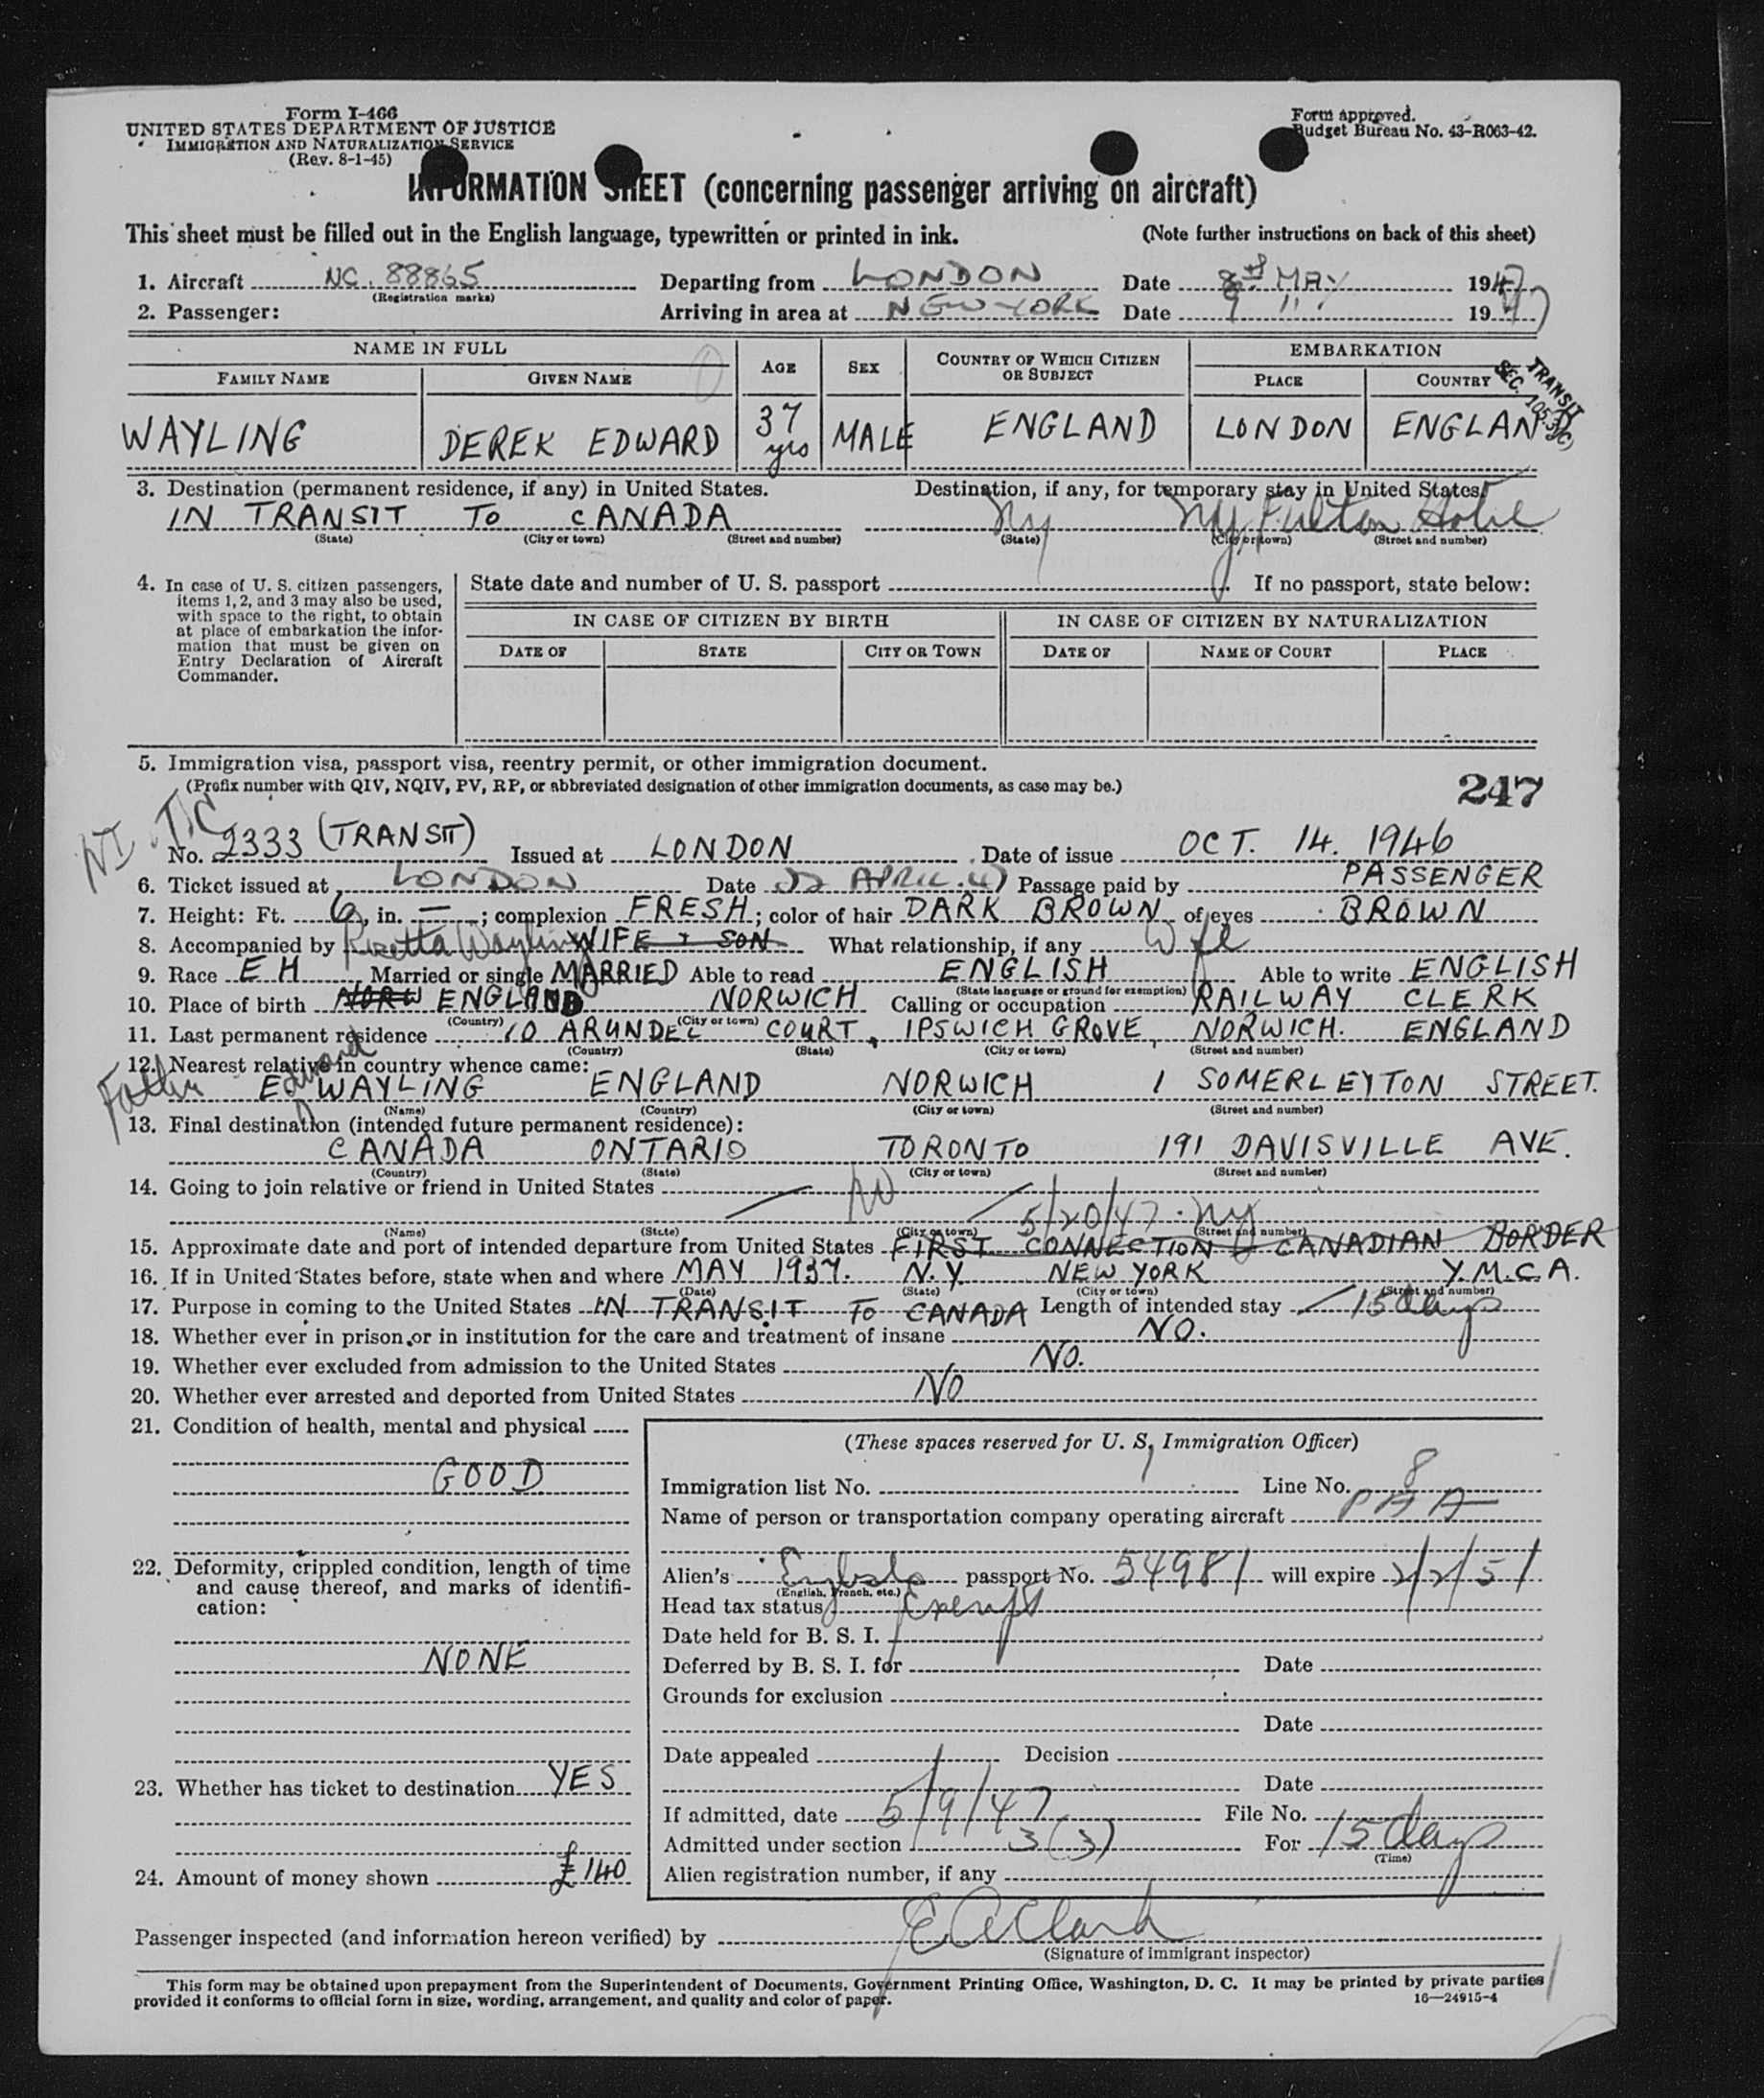 Form I-466
UNITED STATES DEPARTMENT OF JUSTICE
IMMIGRATION AND NATURALIZATION SERVICE
(Rev. 8-1-45)
Form approved.
Budget Bureau No. 43-R063-42.
INFORMATION SHEET (concerning passenger arriving on aircraft)
This sheet must be filled out in the English language, typewritten or printed in ink. (Note further instructions on back of this sheet)
1. Aircraft NC. 88865 Departing from LONDON Date 8th MAY 1947
(Registration marks)
2. Passenger: Arriving in area at NEW YORK Date 9 " 1947
NAME IN FULL AGE SEX COUNTRY OF WHICH CITIZEN OR SUBJECT EMBARKATION
FAMILY NAME GIVEN NAME PLACE COUNTRY
TRANSIT
SEC. 105.3(C)
WAYLING DEREK EDWARD 37 yrs MALE ENGLAND LONDON ENGLAND
3. Destination (permanent residence, if any) in United States. Destination, if any, for temporary stay in United States.
IN TRANSIT TO CANADA Ny Ny Fulton Hotel
(State) (City or town) (Street and number) (State) (City or town) (Street and number)
4. In case of U. S. citizen passengers, items 1, 2, and 3 may also be used, with space to the right, to obtain at place of embarkation the information that must be given on Entry Declaration of Aircraft Commander.
State date and number of U. S. passport If no passport, state below:
IN CASE OF CITIZEN BY BIRTH IN CASE OF CITIZEN BY NATURALIZATION
DATE OF STATE CITY OR TOWN DATE OF NAME OF COURT PLACE
5. Immigration visa, passport visa, reentry permit, or other immigration document.
(Prefix number with QIV, NQIV, PV, RP, or abbreviated designation of other immigration documents, as case may be.)
247
NI TC
No. 2333 (TRANSIT) Issued at LONDON Date of issue OCT. 14. 1946
6. Ticket issued at LONDON Date APRIL Passage paid by PASSENGER
7. Height: Ft. 6, in. —; complexion FRESH; color of hair DARK BROWN of eyes BROWN
8. Accompanied by Wayling WIFE & SON What relationship, if any Wife
9. Race EH Married or single MARRIED Able to read ENGLISH Able to write ENGLISH
(State language or ground for exemption)
10. Place of birth NORW ENGLAND NORWICH Calling or occupation RAILWAY CLERK
(Country) (City or town)
11. Last permanent residence 10 ARUNDEL COURT, IPSWICH GROVE, NORWICH. ENGLAND
(Country) (State) (City or town) (Street and number)
12. Nearest relative in country whence came:
Father Edward WAYLING ENGLAND NORWICH 1 SOMERLEYTON STREET.
(Name) (Country) (City or town) (Street and number)
13. Final destination (intended future permanent residence):
CANADA ONTARIO TORONTO 191 DAVISVILLE AVE.
(Country) (State) (City or town) (Street and number)
14. Going to join relative or friend in United States — No —
5/20/47. Ny
(Name) (State) (City or town) (Street and number)
15. Approximate date and port of intended departure from United States FIRST CONNECTION CANADIAN BORDER
16. If in United States before, state when and where MAY 1937. N.Y NEW YORK Y.M.C.A.
(Date) (State) (City or town) (Street and number)
17. Purpose in coming to the United States IN TRANSIT TO CANADA Length of intended stay 15 days
18. Whether ever in prison or in institution for the care and treatment of insane NO.
19. Whether ever excluded from admission to the United States NO.
20. Whether ever arrested and deported from United States NO
21. Condition of health, mental and physical
GOOD
22. Deformity, crippled condition, length of time and cause thereof, and marks of identification:
NONE
23. Whether has ticket to destination YES
24. Amount of money shown £140
(These spaces reserved for U. S. Immigration Officer)
Immigration list No. 1 Line No. 8
Name of person or transportation company operating aircraft PAA
Alien's English passport No. 54981 will expire 2/2/51
(English, French, etc.)
Head tax status Exempt
Date held for B. S. I.
Deferred by B. S. I. for Date
Grounds for exclusion
Date
Date appealed Decision
Date
If admitted, date 5/9/47 File No.
Admitted under section 3(3) For 15 days
(Time)
Alien registration number, if any
Passenger inspected (and information hereon verified) by E A Clark
(Signature of immigrant inspector)
This form may be obtained upon prepayment from the Superintendent of Documents, Government Printing Office, Washington, D. C. It may be printed by private parties
provided it conforms to official form in size, wording, arrangement, and quality and color of paper. 16—24915-4